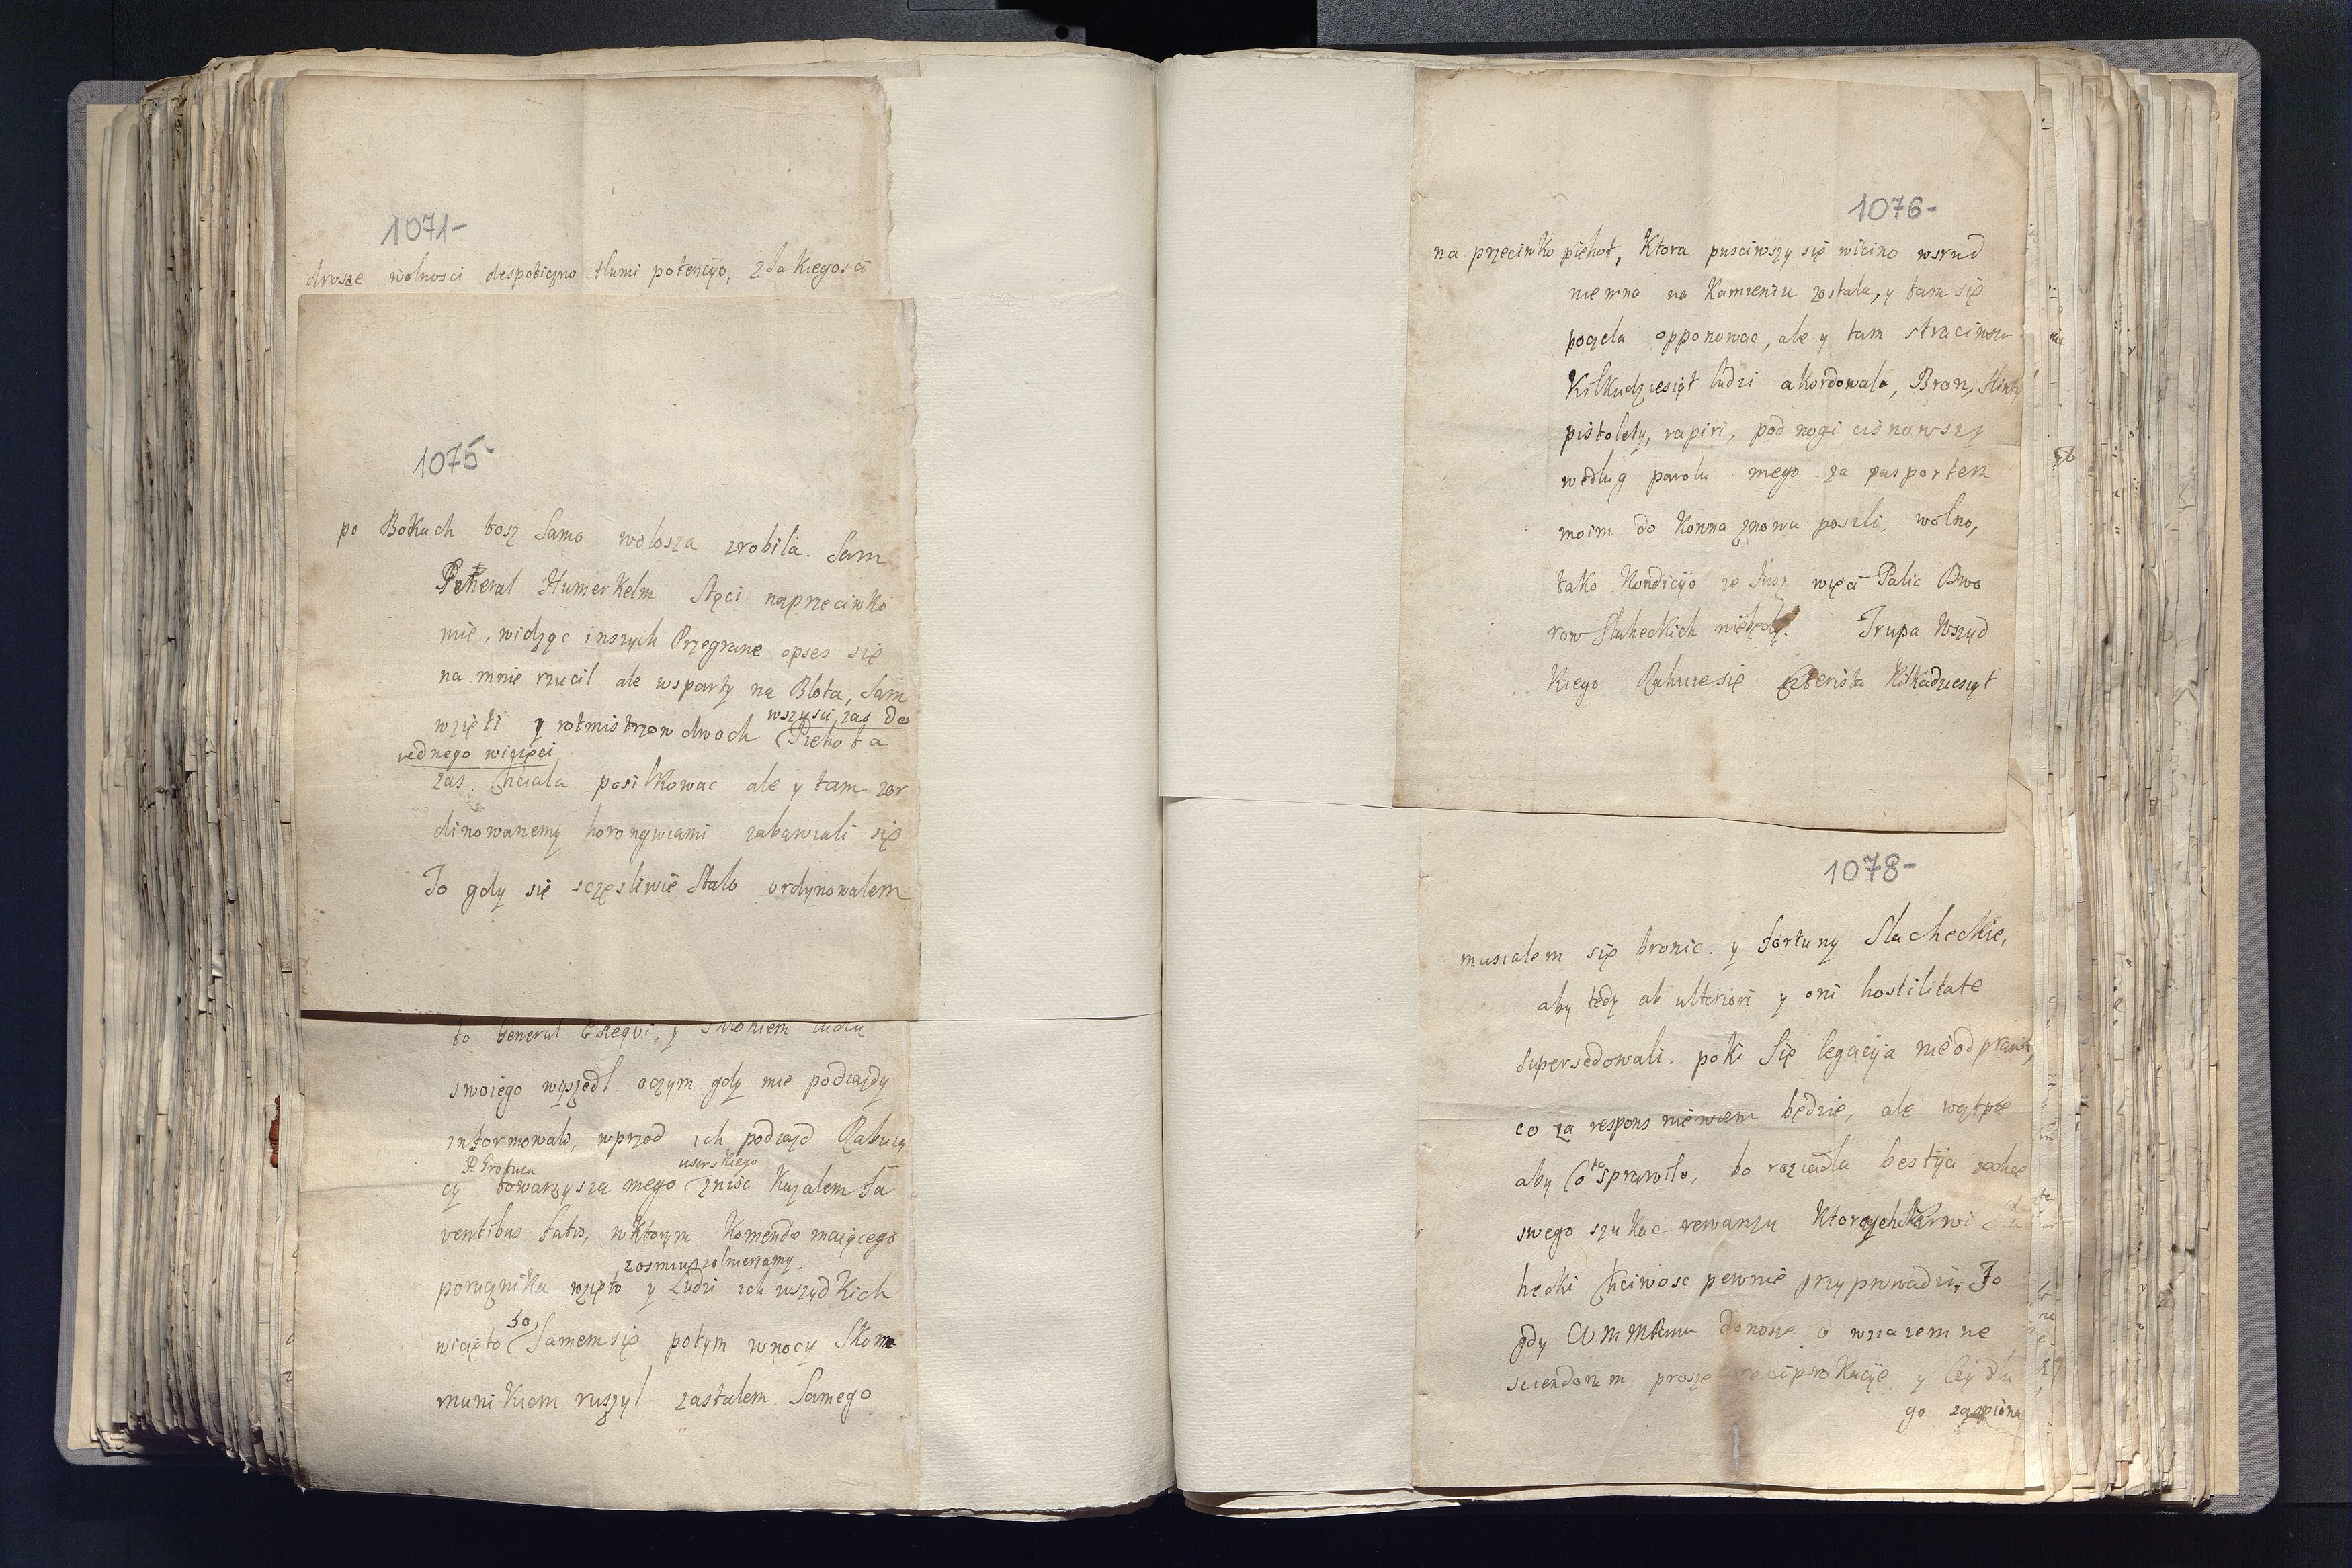 1071-
drosze wolnosci despoticzno tlumi potencyo, z Ja kiegosci
1075-
po Bokach tosz samo wolosza zrobila. Sam
General Humerkelm Stąci naprzeciwko
mie, widząc inszych Przegrane opses się
na mnie rzucil ale wsparty na Blota, Sam
wszysci zas do
wzięti y rotmistrzow dwoch Piehota
iednego wicięci
zas chciala posilkowac ale y tam zor
dinowanemy horongwiami zabawiali się
To gdy się sczęsliwie Stalo ordynowalem
to General y ludzi
swoiego wyszedl oczym gdy mie podiazdy
informowali, wprzod ich podiazd Rabuią
P. Grotusa userskiego
cy towarzysza mego znisc Kazalem fa
ventibus fatis, wktorym Komende maiącego
zosmiu zolnierzamy
porucznika wzięto y Ludzi ich wszydkich
50
wicięto Samemsię potym wnocy Skom
munikiem ruszyl zastalem Samego
1076-
na przeciwko piehot, Ktora pusciwszy się wicino wsrud
niemna na Kamieniu zostala, y tam się
poczela opponowac, ale y tam straciwszy
Kilkudziesiąt ludzi akordowala, Bron, flinty
pistolety, rapiri, pod nogi cisnowszy
wedlug parolu mego za pasportem
moim do Konna znowu poszli, wolno,
tako Kondicijo ze Jusz więci Palic Dwo
row Slaheckich niebędą. Trupa Wszyd
kiego Rahuiesię Kilkadziesiąt
1078-
musialem się bronic. y fortuny Slacheckie,
aby tedy ab ulteriori y oni hostilitate
supersedowali. poki się legacyja nieodprawi,
co za respons niewiem będzie, ale wątpie
to
aby co sprawilo, bo roziadla bestija zechce
swego szukac rewanzu Ktorych Krwi Sla
hecki chciwosc pewnie przyprowadzi, To
gdy donosze o wzaiemne
sciendorum prosze reciprokacyje y
go